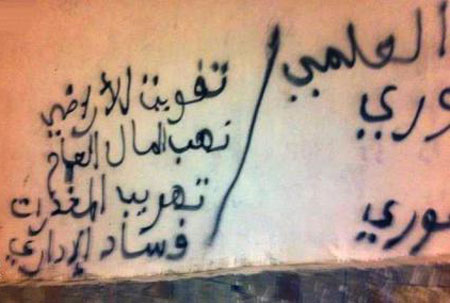 العلمي
وري
وري
تفويت للأراضي
نهب المال العام
تهريب المخدرات
فساد الإداري